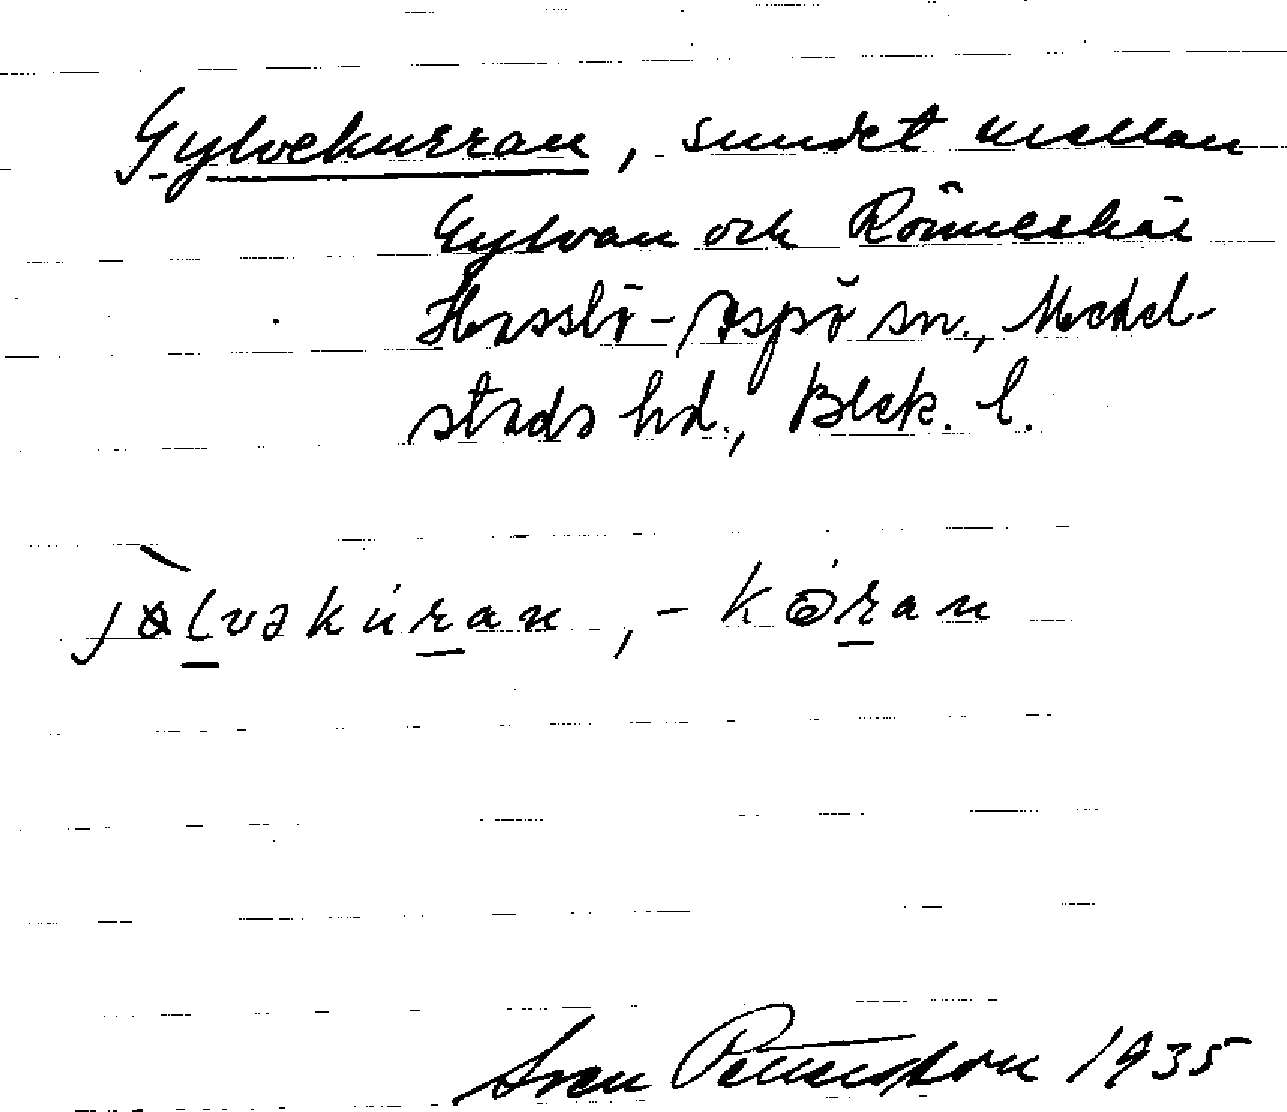 Gylvekurran, sundet mellan
Gylvan och Rönneskär
Hasslö-Aspö sn., Medel-
stads hd., Blek. l.
jɵ̀lvəkúran, -kɵ́ran
Sven Pettersson 1935